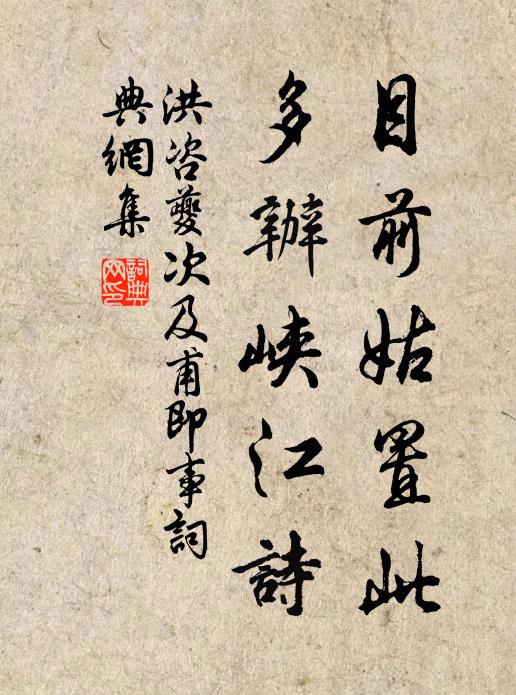 目前姑置此
多辦峽江詩
洪咨夔次及甫即事詞
典網集
詞典網印